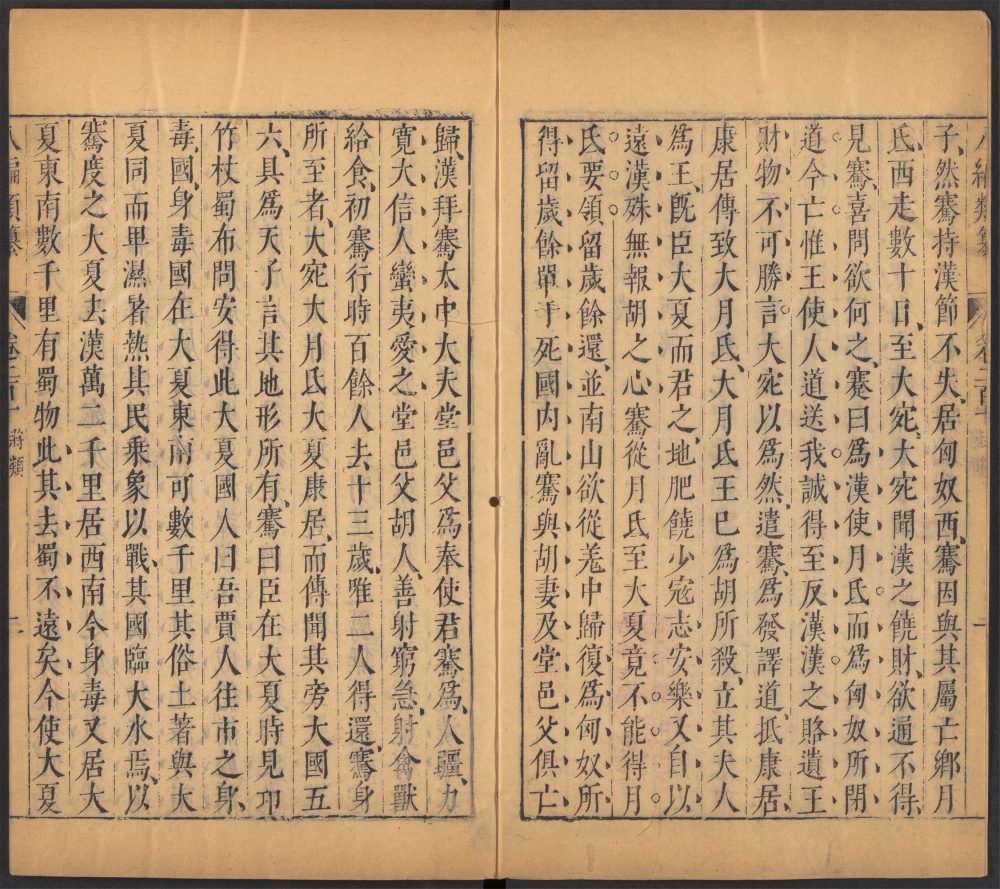 八編類纂
卷二百
一
子然騫持漢節不失居匈奴西騫因與其屬亡鄉月
氏西走數十日至大宛大宛聞漢之饒財欲通不得
見騫喜問欲何之騫曰為漢使月氏而為匈奴所閉
道今亡惟王使人道送我誠得至反漢漢之賂遺王
財物不可勝言大宛以為然遣騫為發譯道抵康居
康居傳致大月氏大月氏王巳為胡所殺立其夫人
為王既臣大夏而君之地肥饒少寇志安樂又自以
遠漢殊無報胡之心騫從月氏至大夏竟不能得月
氏要領留歲餘還並南山欲從羌中歸復為匈奴所
得留歲餘單于死國內亂騫與胡妻及堂邑父俱亡
歸漢拜騫太中大夫堂邑父為奉使君騫為人彊力
寬大信人蠻夷愛之堂邑父胡人善射窮急射禽獸
給食初騫行時百餘人去十三歲唯二人得還騫身
所至者大宛大月氏大夏康居而傳聞其旁大國五
六具為天子言其地形所有騫曰臣在大夏時見卭
竹杖蜀布問安得此大夏國人曰吾賈人往市之身
毒國身毒國在大夏東南可數千里其俗土著與大
夏同而卑濕暑熱其民乘象以戰其國臨大水焉以
騫度之大夏去漢萬二千里居西南今身毒又居大
夏東南數千里有蜀物此其去蜀不遠矣今使大夏
八編類纂
卷二百十
將類
二